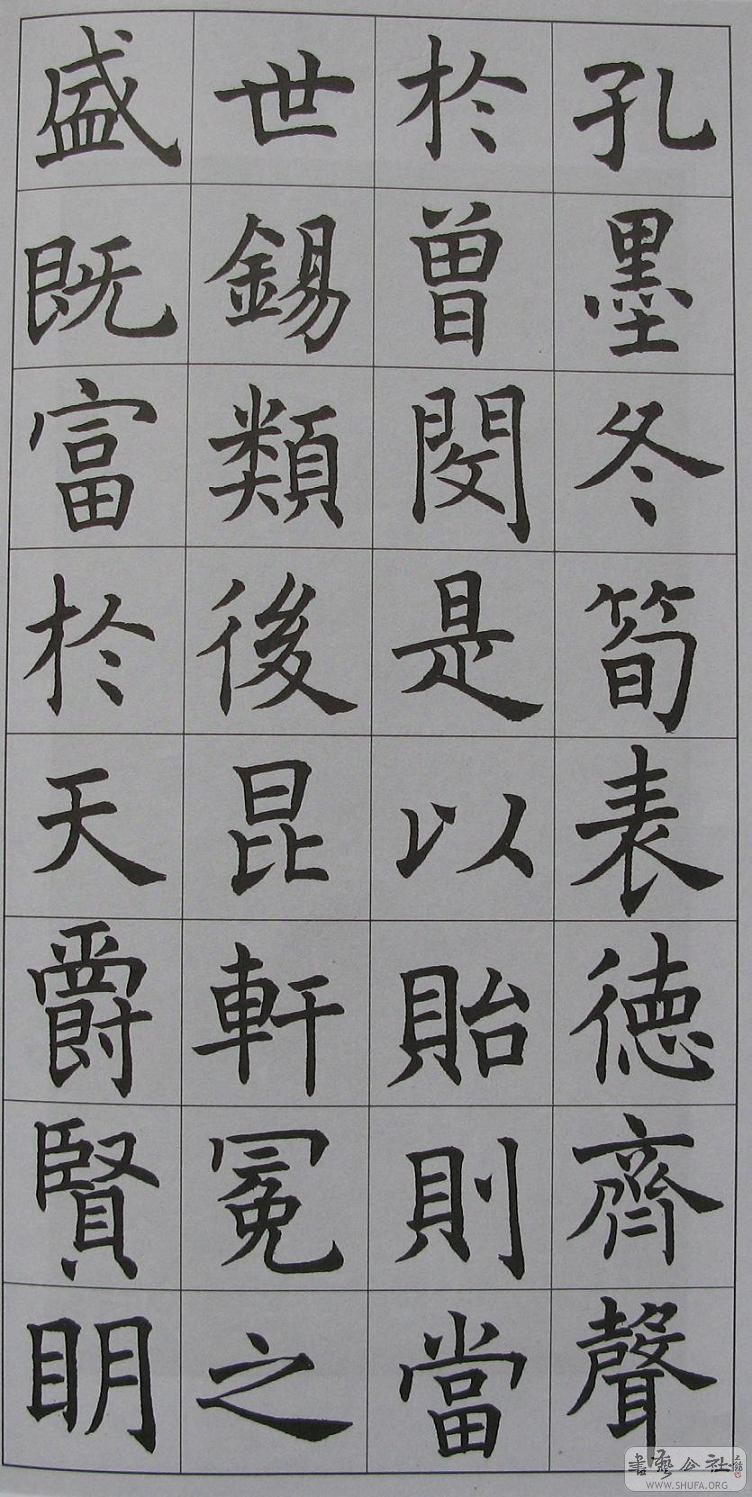 孔墨冬筍表徳齊聲
於曾閔是以貽則當
世錫類後昆軒冕之
盛既富於天爵賢眀
書藝公社
WWW.SHUFA.ORG